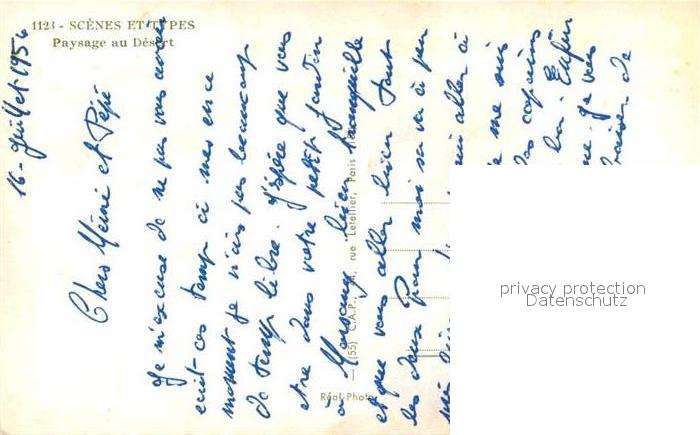 1123 - SCÈNES ET TYPES
Paysage au Désert
16 - Juillet 1956
Chers Mémé et Pépé
Je m'excuse de ne pas vous avoir
ecrit ces temp ci mes en ce
moment je n'ais pas beaucoup
de temp libre. J'éspère que vous
etre dans votre petit jardin
à bien tranquille
et que vous aller bien tout
les deux Pour moi sa va à peu
aller à
me suis
copains
Enfin
que je vous
baiser de
(55) C.A.P., rue Letellier, Paris
Réal-Photo
privacy protection
Datenschutz